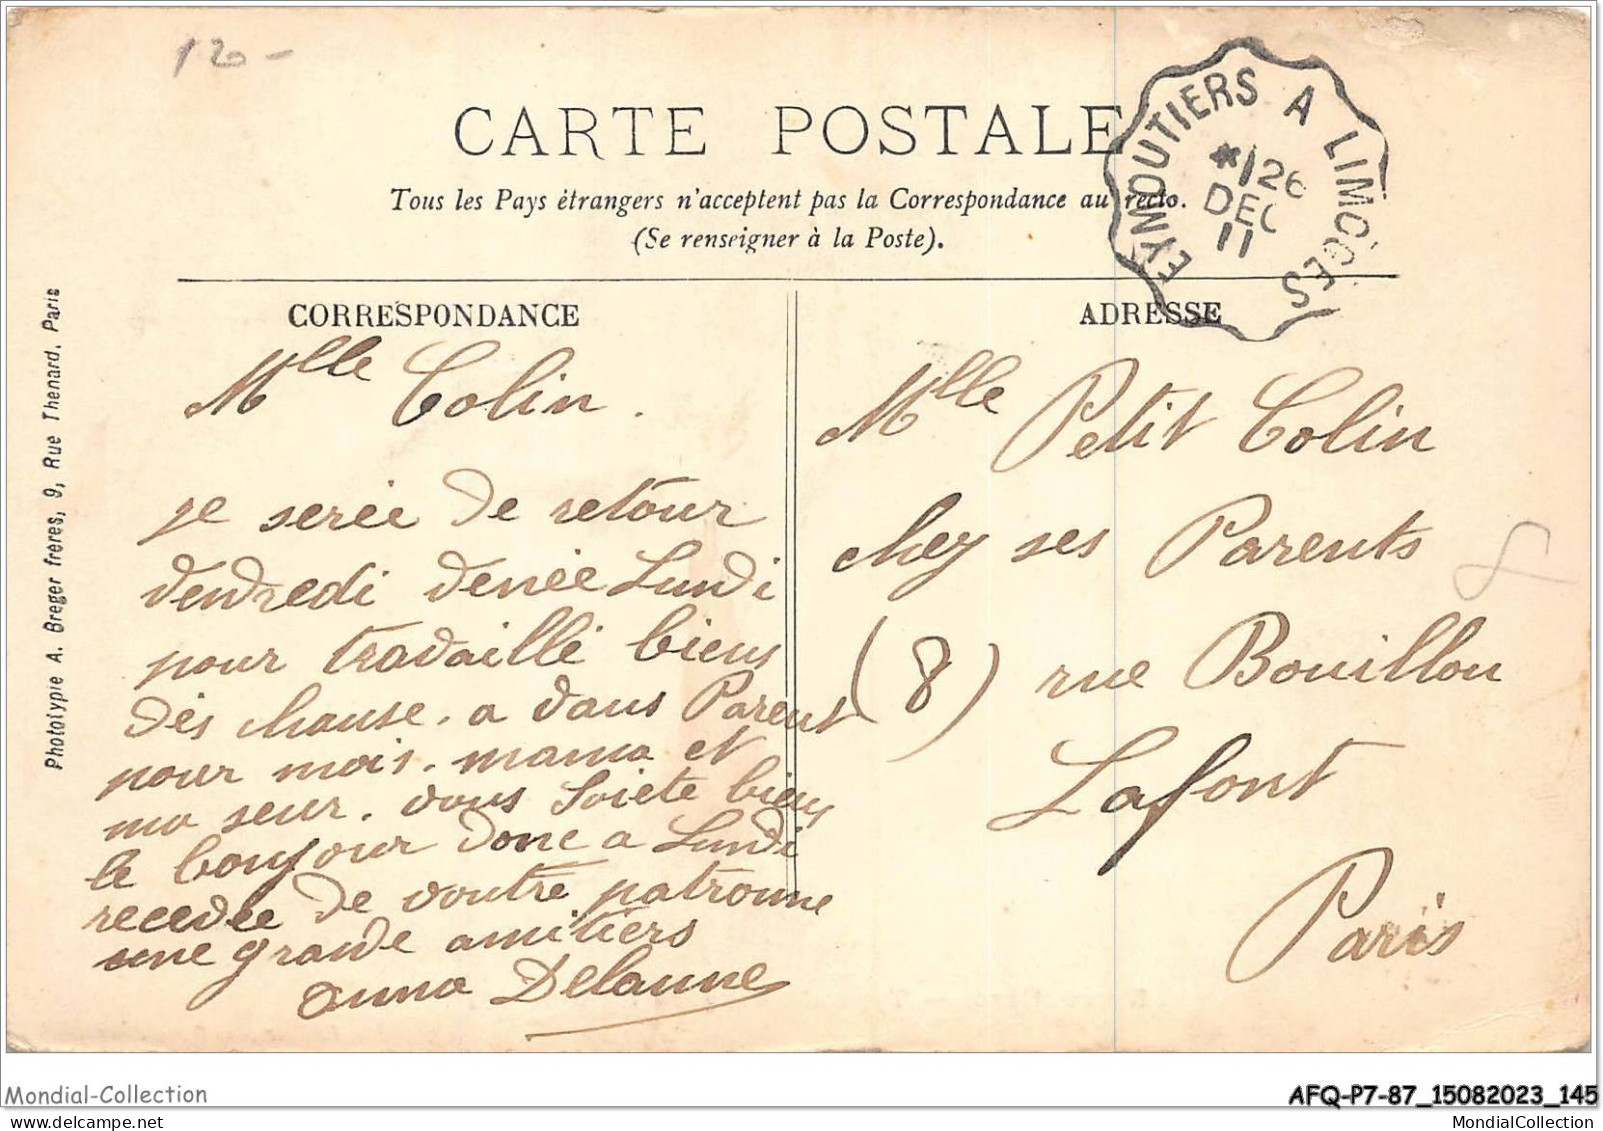 120-
CARTE POSTALE
Tous les Pays étrangers n'acceptent pas la Correspondance au recto.
(Se renseigner à la Poste).
EYMOUTIERS A LIMOGES
*1 26
DEC
11
CORRESPONDANCE
Mlle Colin.
je serée de retour
vendredi venée Lundi
pour travaillé biens
dés chause. a vous Parent
pour mois. mama et
ma seur. vous soiete biens
le bonjour donc a Lundi
recevée de voutre patronne
une grande amitiers
anna Delaune
ADRESSE
Mlle Petit Colin
chez ses Parents
(8) rue Bouillou
Lafont
Paris
8
Phototypie A. Breger frères, 9, Rue Thenard, Paris
Mondial-Collection
AFQ-P7-87_15082023_145
MondialCollection